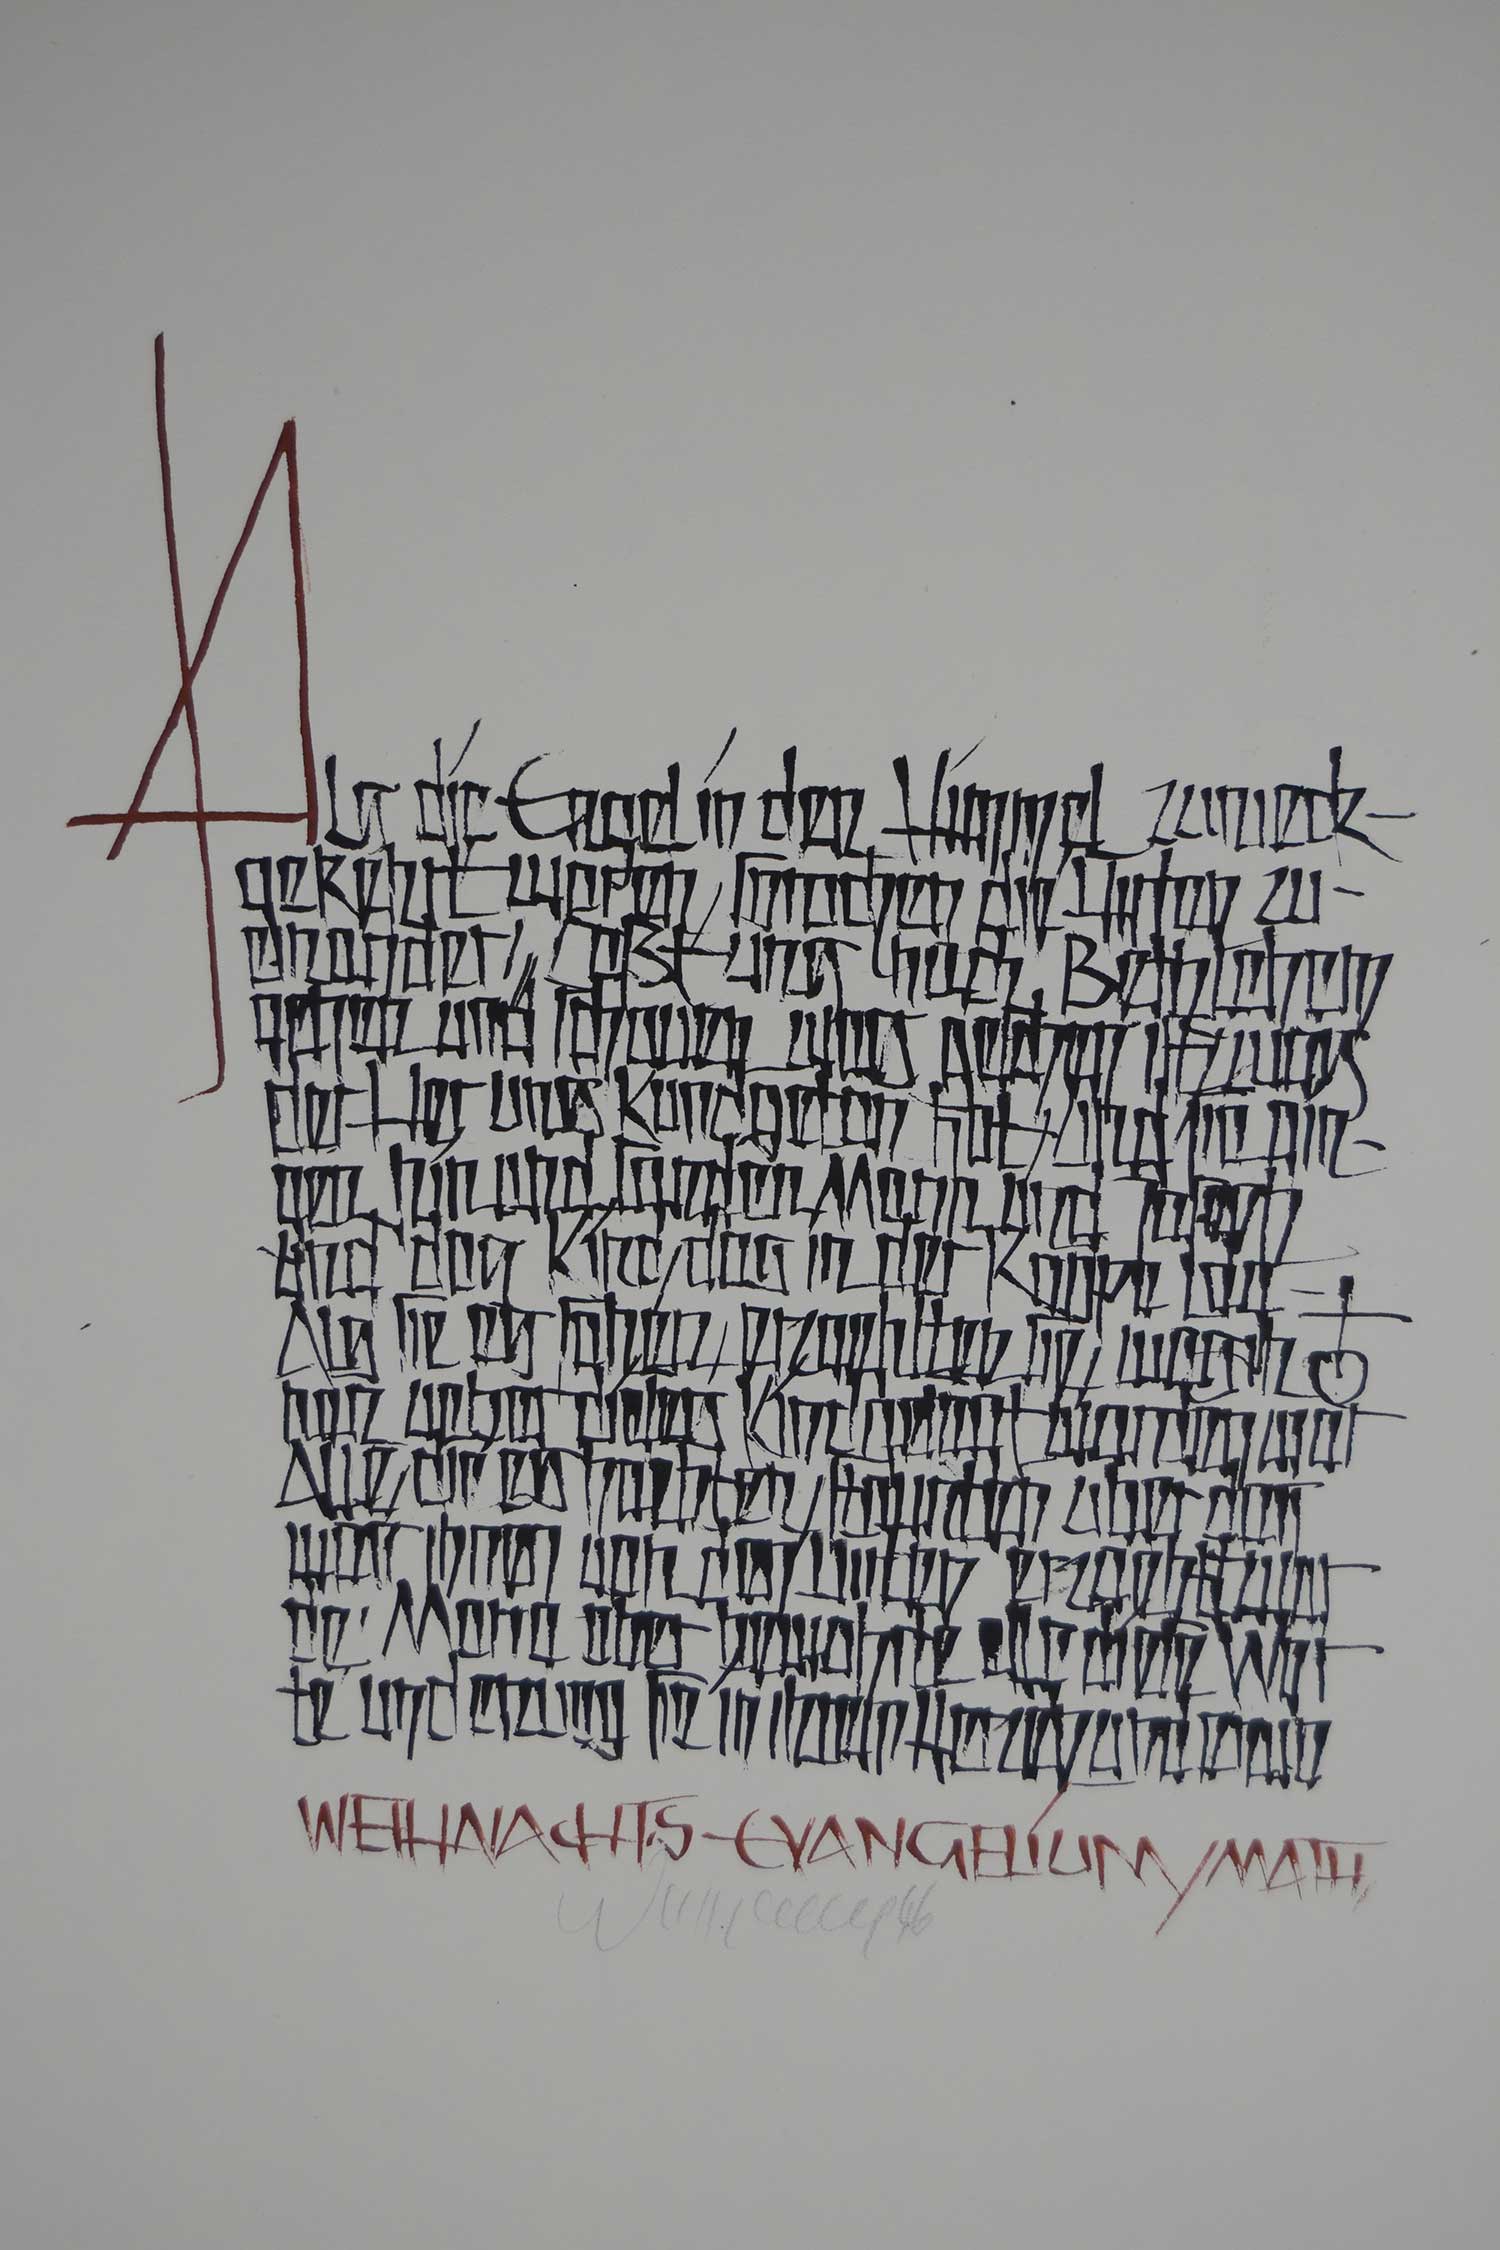 Als die Engel in den Himmel zurueck-
gekehrt waren, sprachen die Hirten zu-
einander, Laßt uns nach Bethlehem
gehen und schauen was geschehen ist, was
der Herr uns kundgetan hat, und sie gin-
gen hin und fanden Maria und Joseph
und das Kind, das in der Krippe lag -
Als sie es sahen, erzaehlten sie, was ih
nen ueber dieses Kind gesagt worden war
Alle, die es hoerten, staunten ueber das
was ihnen von den Hirten erzaehlt wur
de. Maria aber bewahrte alle diese Wor
te und erwog sie in ihrem Herzen und
WEIHNACHTS-EVANGELIUM/MATH,